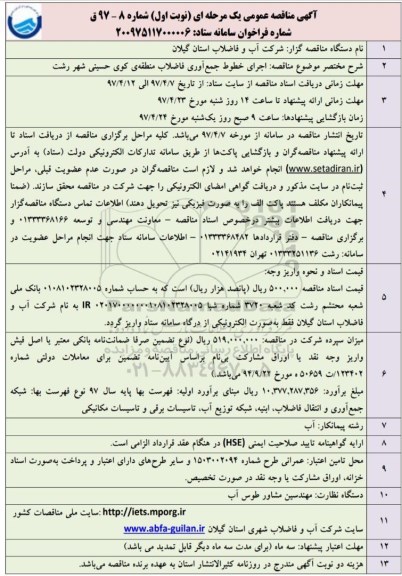 آگهی مناقصه عمومی یک مرحله ای (نوبت اول) شماره ۸ - ۹۷ ق
شماره فراخوان سامانه ستاد: ۲۰۰۹۷۵۱۱۷۰۰۰۰۰۶
۱ نام دستگاه مناقصه گزار: شرکت آب و فاضلاب استان گیلان
۲ شرح مختصر موضوع مناقصه: اجرای خطوط جمع‌آوری فاضلاب منطقه‌ی کوی حسینی شهر رشت
مهلت زمانی دریافت اسناد مناقصه از سایت ستاد: از تاریخ ۹۷/۴/۷ الی ۹۷/۴/۱۲
۳ مهلت زمانی ارائه پیشنهاد تا ساعت ۱۴ روز شنبه مورخ ۹۷/۴/۲۳
زمان بازگشایی پیشنهادها: ساعت ۹ صبح روز یک‌شنبه مورخ ۹۷/۴/۲۴
تاریخ انتشار مناقصه در سامانه از مورخه ۹۷/۴/۷ می‌باشد. کلیه مراحل برگزاری مناقصه از دریافت اسناد تا
ارائه پیشنهاد مناقصه‌گران و بازگشایی پاکت‌ها از طریق سامانه تدارکات الکترونیکی دولت (ستاد) به آدرس
(www.setadiran.ir) انجام خواهد شد و لازم است مناقصه‌گران در صورت عدم عضویت قبلی، مراحل
ثبت‌نام در سایت مذکور و دریافت گواهی امضای الکترونیکی را جهت شرکت در مناقصه محقق سازند. (ضمنا
۴ پیمانکاران مکلف هستند پاکت الف را به صورت فیزیکی نیز تحویل دهند) اطلاعات تماس دستگاه مناقصه‌گزار
جهت دریافت اطلاعات بیشتر درخصوص اسناد مناقصه - معاونت مهندسی و توسعه ۰۱۳۳۳۳۶۸۱۶۶ و
برگزاری مناقصه - دفتر قراردادها ۰۱۳۳۳۳۶۸۴۸۲ - اطلاعات سامانه ستاد جهت انجام مراحل عضویت در
سامانه: رشت ۰۱۳۳۳۴۵۱۱۳۶ تهران ۰۲۱۴۱۹۳۴
قیمت اسناد و نحوه واریز وجه:
۵ قیمت اسناد مناقصه ۵۰۰,۰۰۰ ریال (پانصد هزار ریال) است که به حساب شماره ۰۱۰۸۱۰۲۳۲۸۰۰۵ بانک ملی
شعبه محتشم رشت کد شعبه ۳۷۲۰ شماره شبا IR ۰۲۰۱۷۰۰۰۰۰۰۰۱۰۸۱۰۲۳۲۸۰۰۵ به نام شرکت آب و
فاضلاب استان گیلان فقط به‌صورت الکترونیکی از درگاه سامانه ستاد واریز گردد.
میزان سپرده شرکت در مناقصه: ۵۱۹,۰۰۰,۰۰۰ ریال (نوع تضمین صرفا ضمانت‌نامه بانکی معتبر یا اصل فیش
واریز وجه نقد یا اوراق مشارکت بی‌نام براساس آیین‌نامه تضمین برای معاملات دولتی شماره
۶ ۱۲۳۴۰۲/ت ۵۰۶۵۹ ه مورخ ۹۴/۹/۲۲ می‌باشد.)
مبلغ برآورد: ۱۰,۳۷۷,۲۸۷,۳۵۶ ریال مبنای برآورد اولیه: فهرست بها پایه سال ۹۷ نوع فهرست بها: شبکه
جمع‌آوری و انتقال فاضلاب، ابنیه، شبکه توزیع آب، تاسیسات برقی و تاسیسات مکانیکی
۷ رشته پیمانکار: آب
۸ ارایه گواهینامه تایید صلاحیت ایمنی (HSE) در هنگام عقد قرارداد الزامی است.
۹ محل تامین اعتبار: عمرانی طرح شماره ۱۵۰۳۰۰۲۰۹۴ و سایر طرح‌های دارای اعتبار و پرداخت به‌صورت اسناد
خزانه، اوراق مشارکت یا وجه نقد در صورت تخصیص.
۱۰ دستگاه نظارت: مهندسین مشاور طوس آب
۱۱ سایت ملی مناقصات کشور: http://iets.mporg.ir
سایت شرکت آب و فاضلاب شهری استان گیلان www.abfa-guilan.ir
۱۲ مهلت اعتبار پیشنهاد: سه ماه (برای مدت سه ماه دیگر قابل تمدید می باشد)
۱۳ هزینه دو نوبت آگهی مندرج در روزنامه کثیرالانتشار استان به عهده برنده مناقصه می‌باشد.